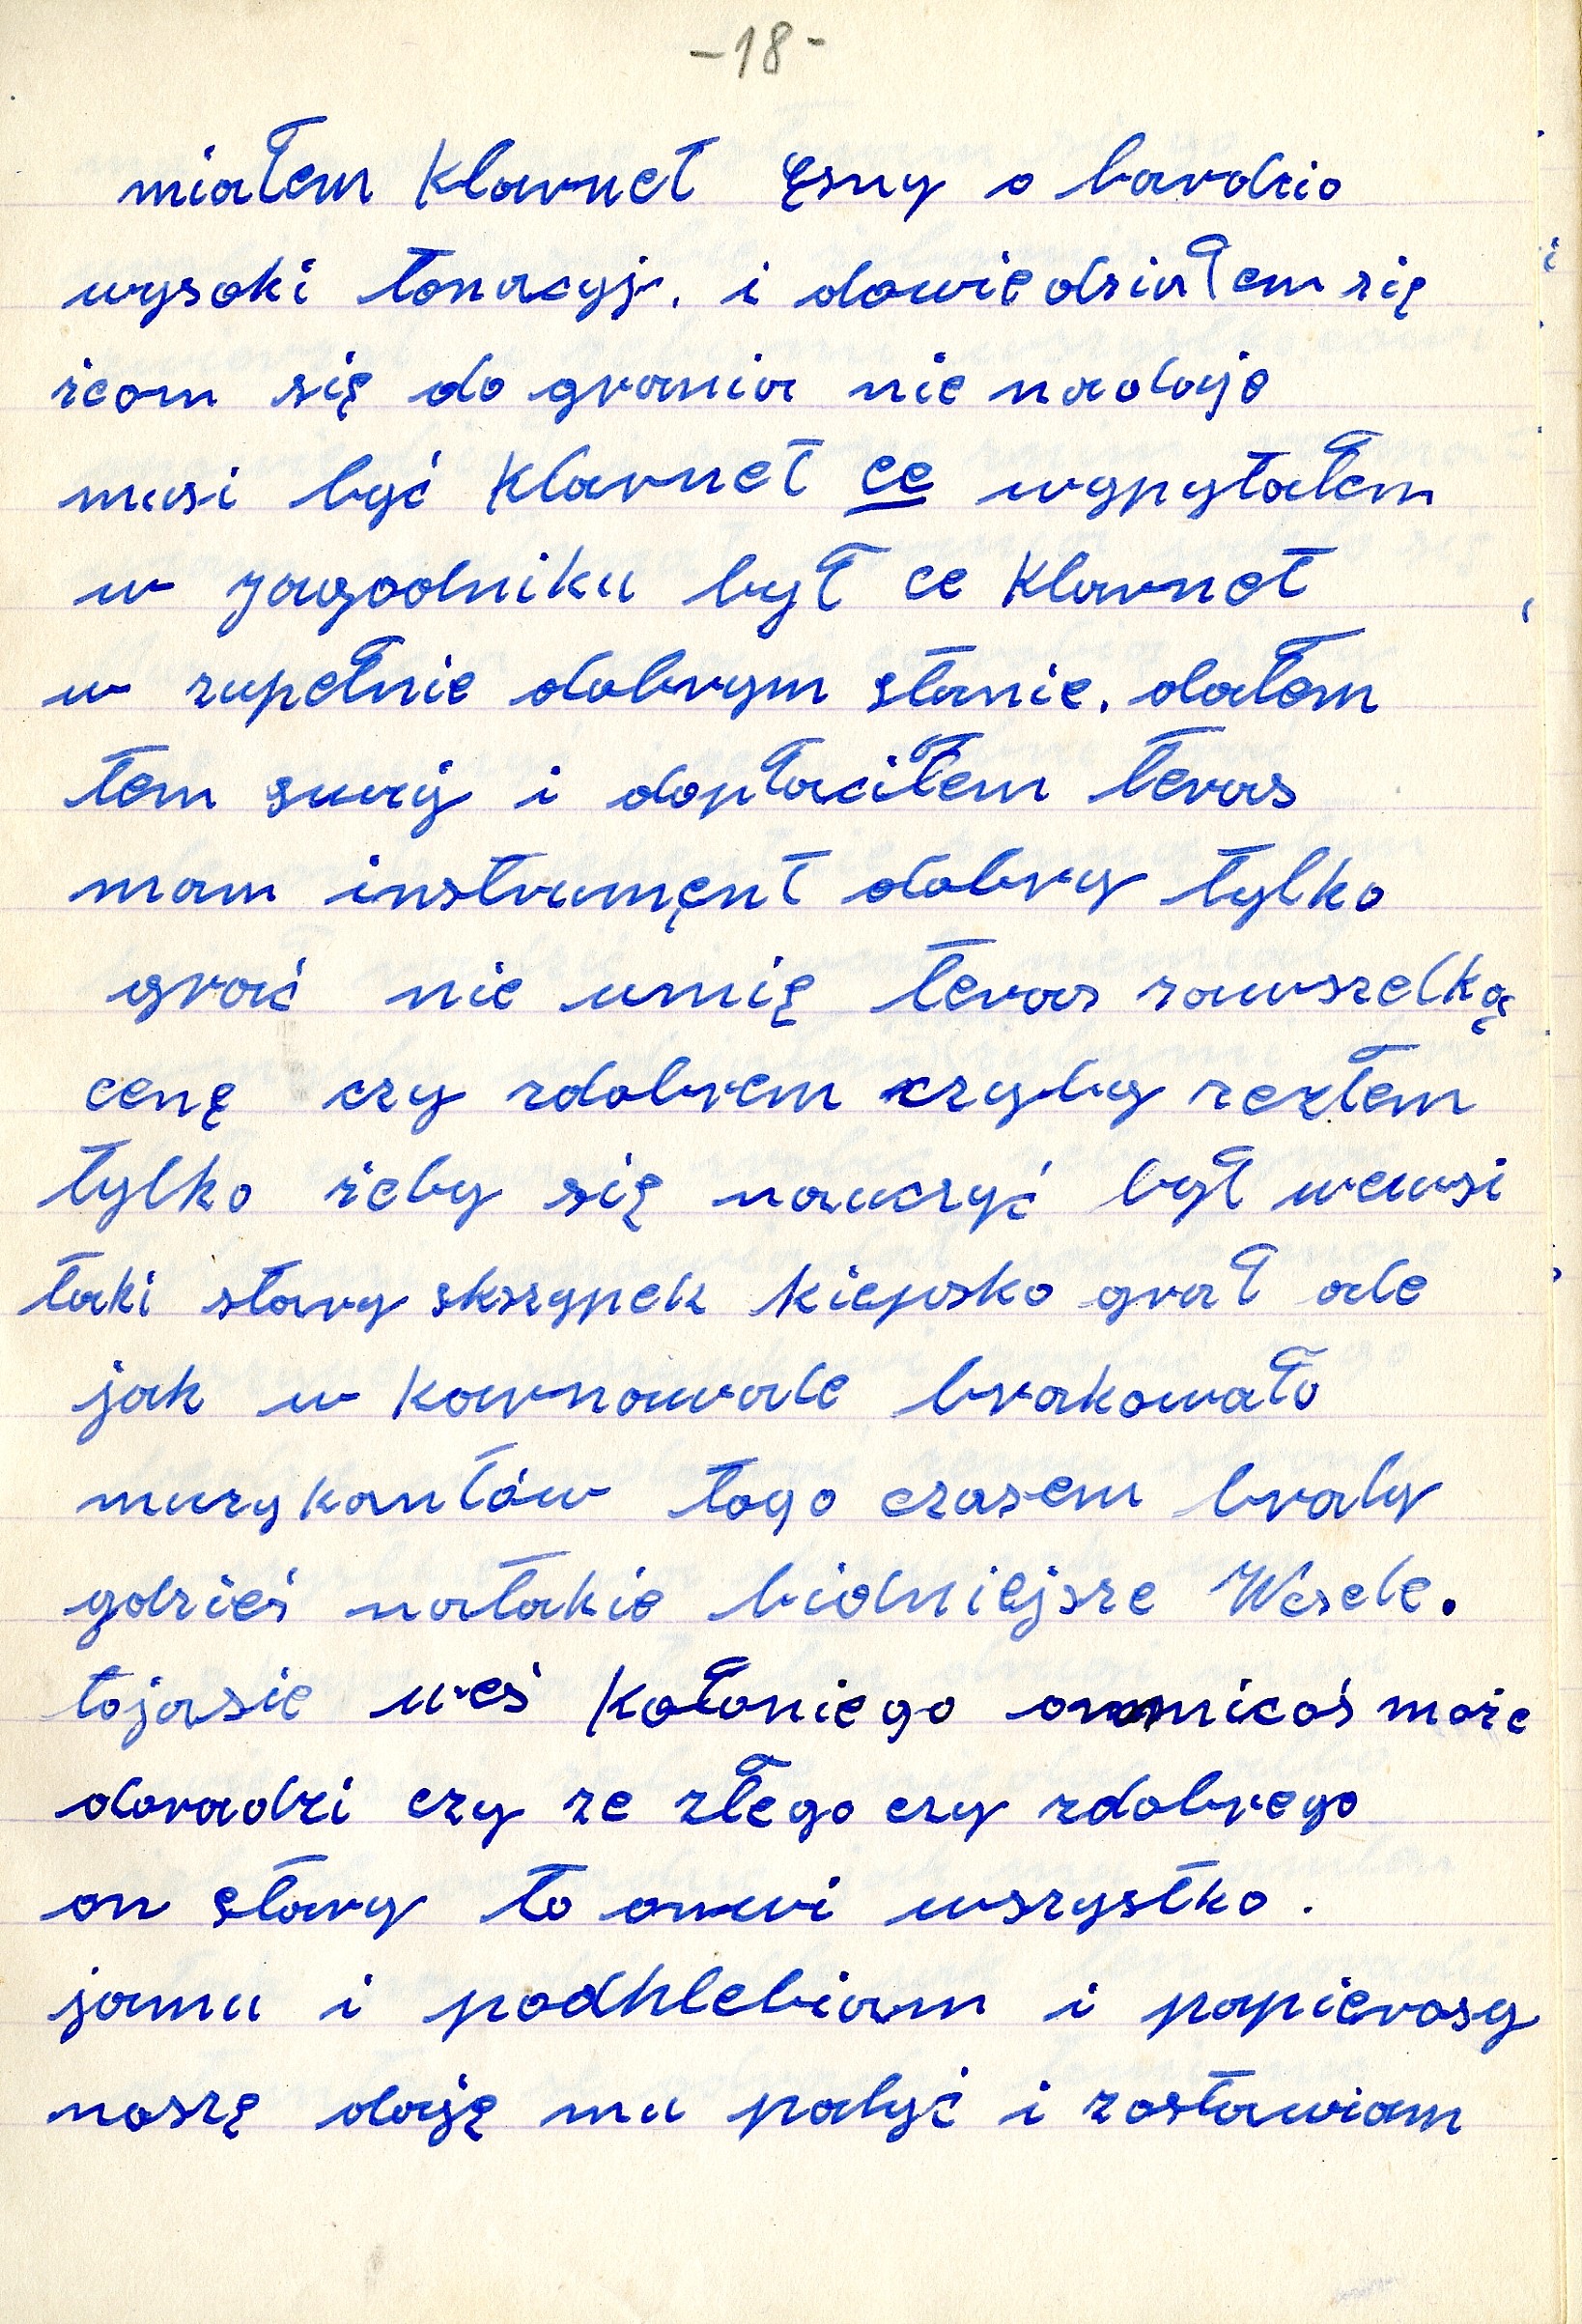 -18-
miałem Klarnet ęsny o bardzio
wysoki tonacyj. i dowiedziałem się
żeom się do grania nie nadaje
musi być Klarnet ce wypytałem
w jagodniku był ce Klarnet
w zupełnie dobrym stanie. dałem
tem swój i dopłaciłem teras
mam instrumęnt dobry tylko
grać nie umię teras zawszelką
cenę czy zdobrem czyby zezłem
tylko żeby się nauczyć był wewsi
taki stary skszypek kiepsko grał ale
jak w karnawale brakowało
muzykantów togo czasem braly
gdzieś natakie bidniejsze Wesele.
tojasie weś Kołoniego onmicoś może
doradzi czy ze złego czy zdobrego
on stary to onwi wszystko.
jamu i podhlebiam i papierosy
noszę daję mu palyć i zostawiam